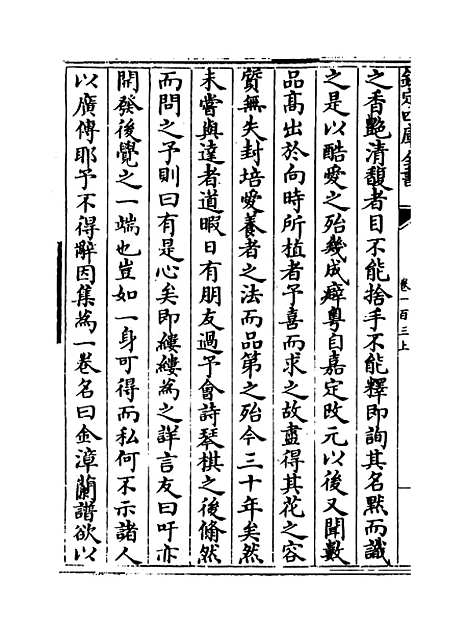 欽定四庫全書
卷一百三上
之香艷清馥者目不能捨手不能釋即詢其名黙而識
之是以酷愛之殆幾成癖粤自嘉定改元以後又聞數
品髙出於向時所植者予喜而求之故盡得其花之容
質無失封培愛養者之法而品第之殆今三十年矣然
未嘗與達者道暇日有朋友過予會詩琴棋之後倏然
而問之予則曰有是心矣即縷縷為之詳言友曰吁亦
開發後覺之一端也豈如一身可得而私何不示諸人
以廣傳耶予不得辭因集為一卷名曰金漳蘭譜欲以